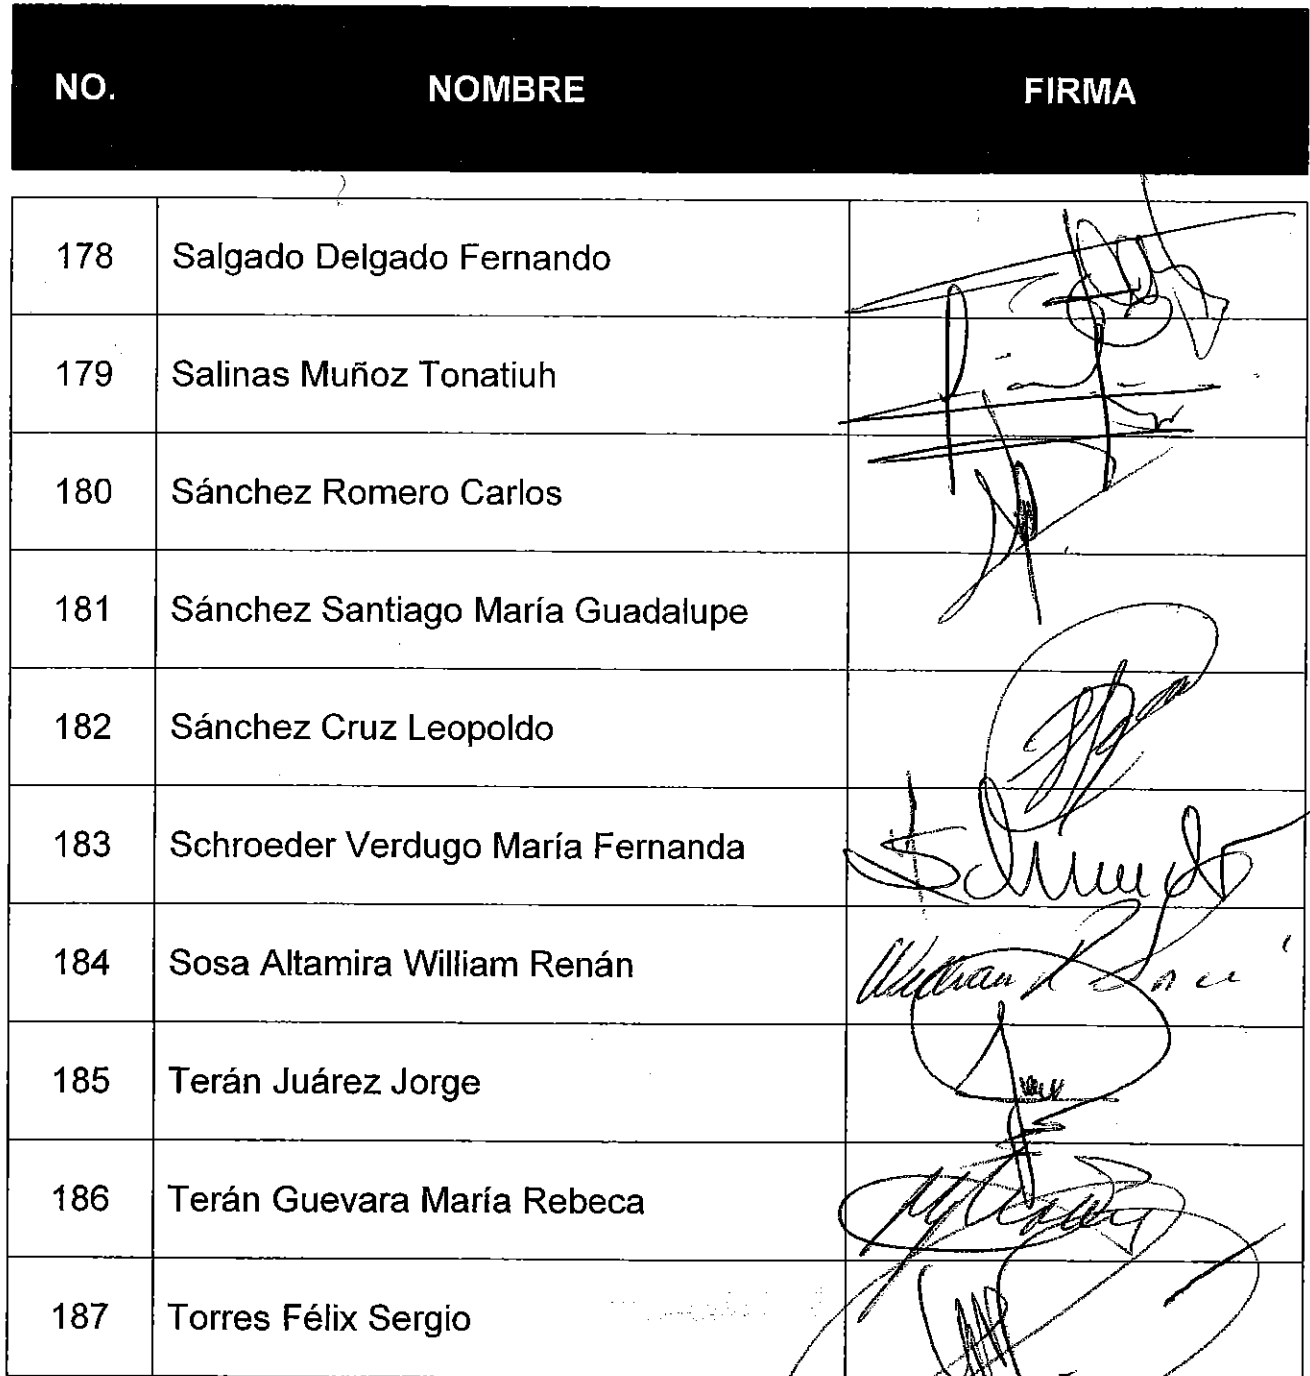 NO. NOMBRE FIRMA
178 Salgado Delgado Fernando
179 Salinas Muñoz Tonatiuh
180 Sánchez Romero Carlos
181 Sánchez Santiago María Guadalupe
182 Sánchez Cruz Leopoldo
183 Schroeder Verdugo María Fernanda
184 Sosa Altamira William Renán
185 Terán Juárez Jorge
186 Terán Guevara María Rebeca
187 Torres Félix Sergio